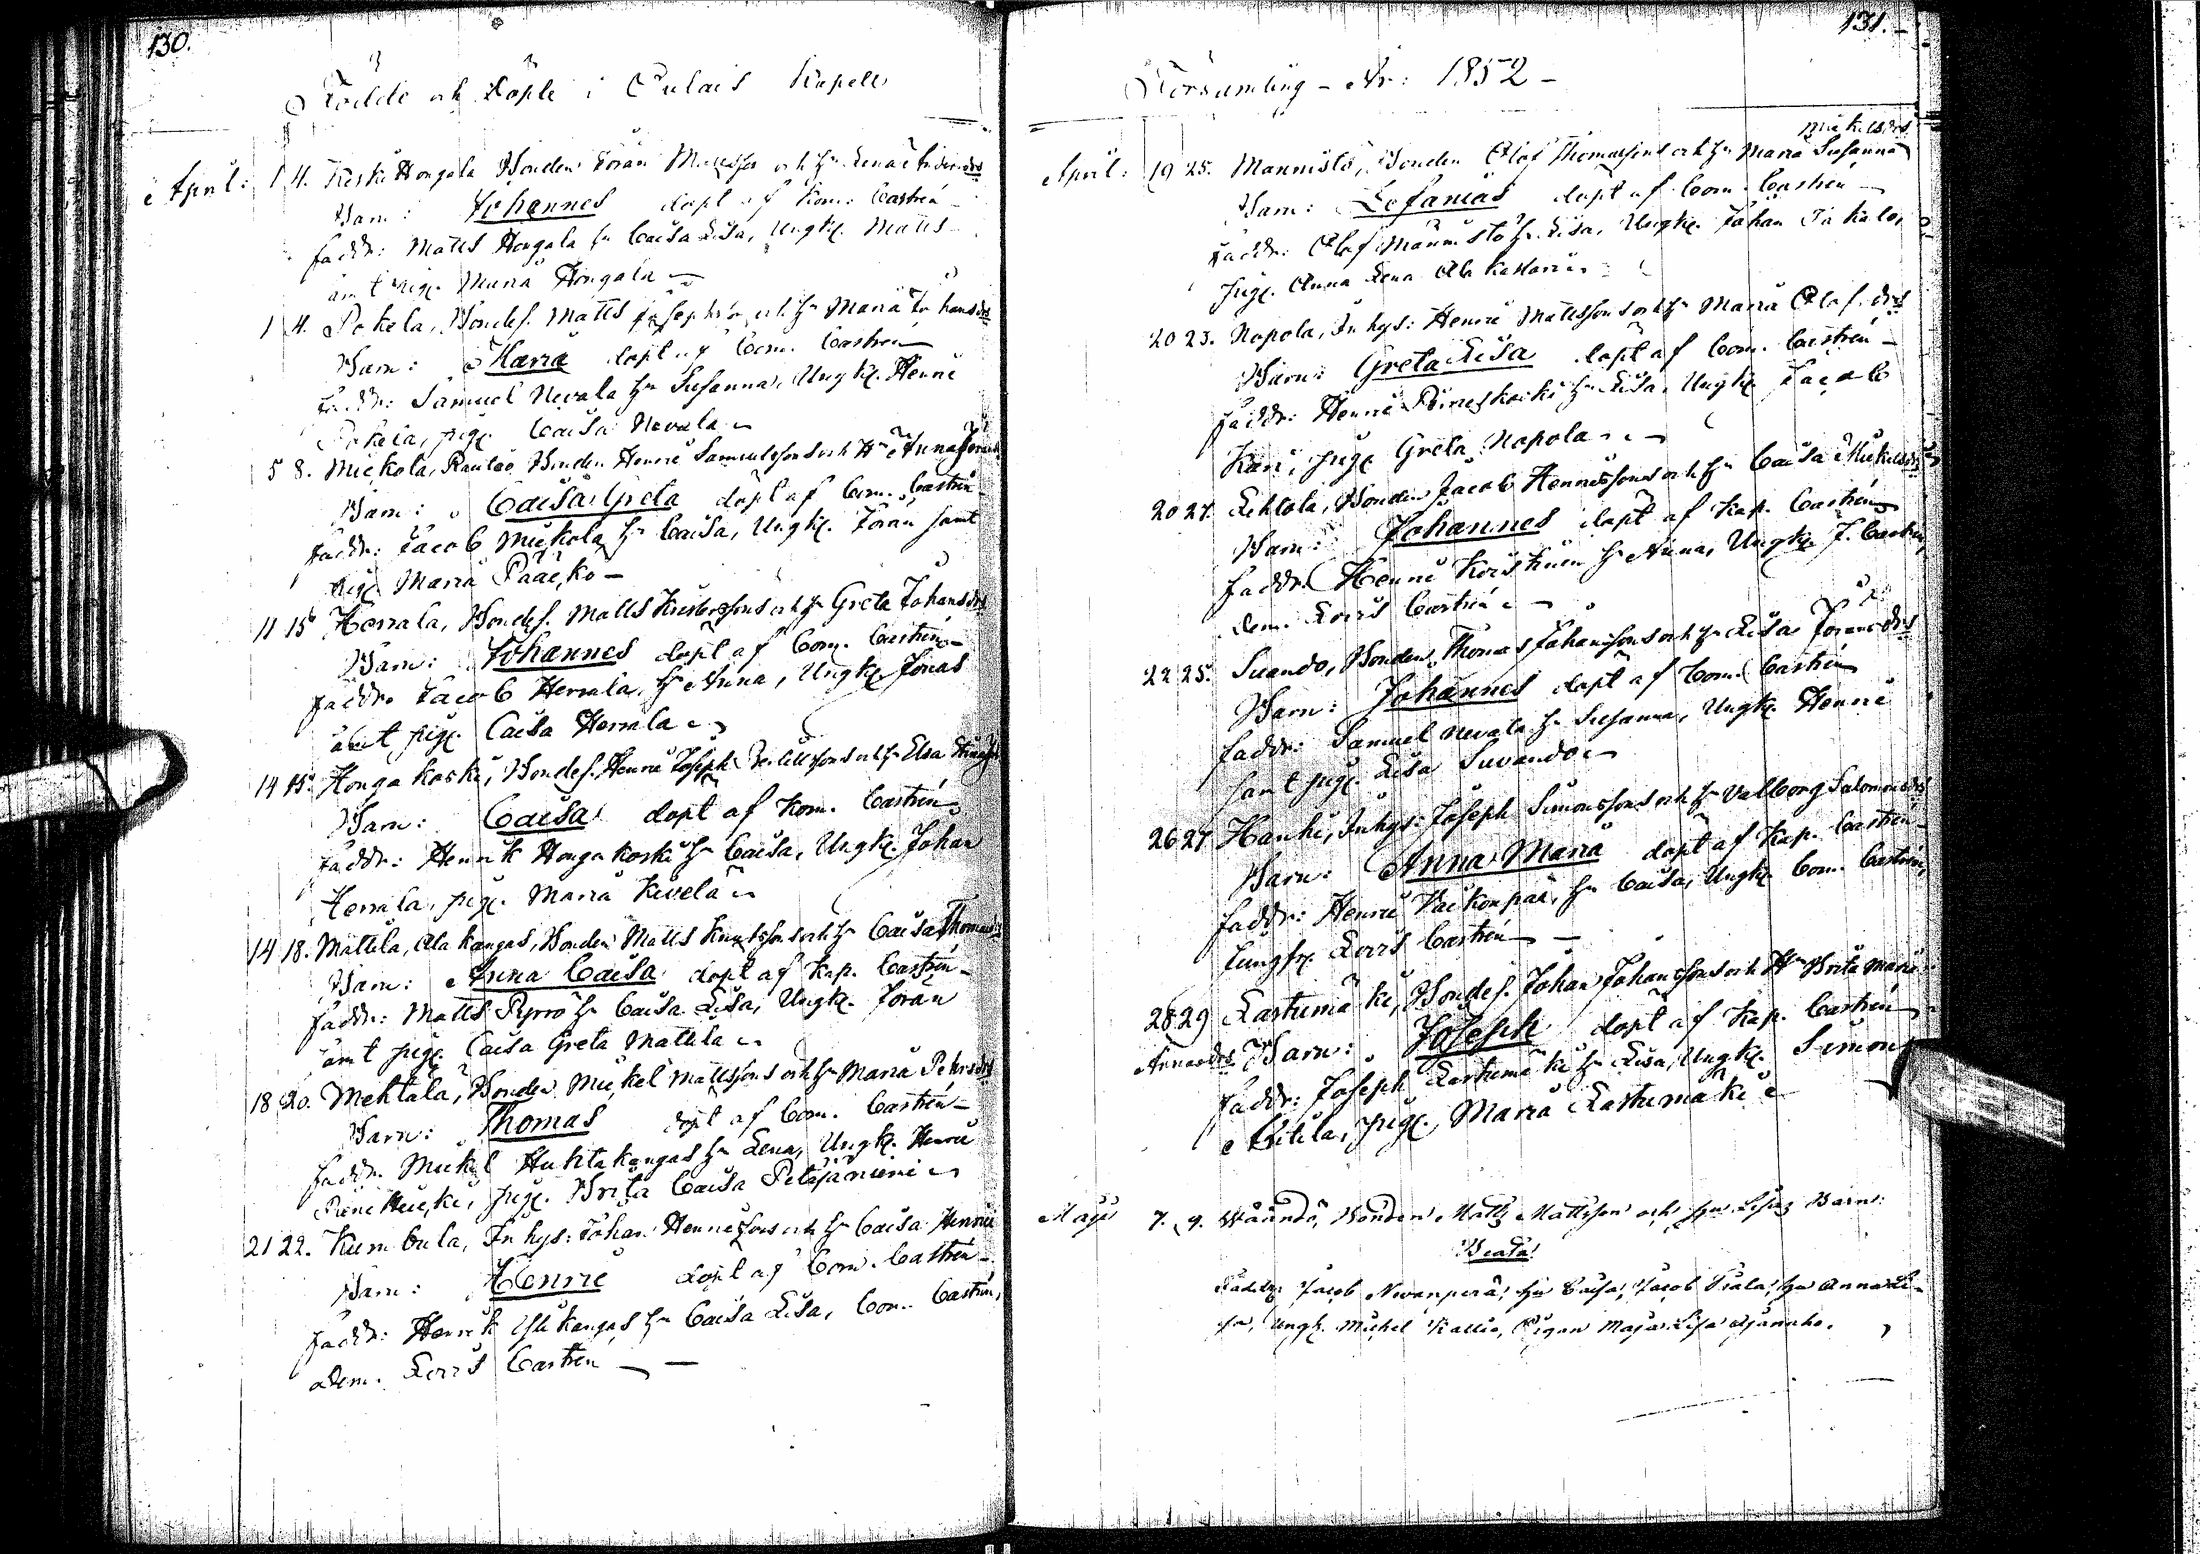 130.
Födde och Döpte i Pulais Kapell
April: 1 4. Keski Hongala Bonden Jöran Mattsson och H. Lena
Barn: Johannes döpt af Kom. Castrén
Faddr: Matts Hongala H. Caisa Lisa, Ungk. Matts
samt pig. Maria Hongala
1 4. Pokela, Bondes. Matts Josephss. och H. Maria Johansdr
Barn: Maria döpt af Com. Castrén
Faddr: Samuel Nevala H. Susanna, Ungk. Henric
Pokela, pig. Caisa Nevala
5 8. Mickola, Rautao, Bonden Henric Samuelsson och H. Anna Jöransd
Barn: Caisa Greta döpt af Com. Castrén
Faddr: Jacob Mickola H. Caisa, Ungk. Jöran samt
Pig. Maria Pääcko
11 15 Herrala, Bondes. Matts Kristersson och H. Greta Johansdr
Barn: Johannes döpt af Com. Castrén
Faddr. Jacob Herrala, H. Anna, Ungk. Jonas
samt pig. Caisa Herrala
14 15. Hongakoski, Bondes. Henric Joseph Bertillsson och H. Elsa
Barn: Caisa döpt af Kom. Castrén
Faddr: Henrik Hongakoski H. Caisa, Ungk. Johan
Herrala, pig. Maria Kivelä
14 18. Mattila, Alakangas, Bonden Matts Knutsson och H. Caisa Thomasdr
Barn: Anna Caisa döpt af Kap. Castrén
Faddr: Matts Pyrrö H. Caisa Lisa, Ungk. Jöran
samt pig. Caisa Greta Mattila
18 20. Mehtälä, Bonden Mickel Mattsson och H. Maria Petersdr
Barn: Thomas döpt af Com. Castrén
Faddr. Mickel Huhtakangas H. Lena, Ungk. Henric
pig. Brita Caisa Petäjäniemi
21 22. Kumbula, Inhys: Johan Henricsson och H. Caisa Henric
Barn: Henric döpt af Com. Castrén
Faddr: Henrik Ylikangas H. Caisa Lisa, Com. Castrén,
Dem. Lovis Castrén
131.
Församling - År: 1852
Mickelsdr
April: 19 25. Mannistö, Bonden Olof Thomasson och H. Maria Susanna
Barn: Sefanias döpt af Com. Castrén
Faddr: Olof Männistö H. Lisa, Ungk. Johan Jakala,
pig. Anna Lena
20 23. Napola, Inhys: Henric Mattsson och H. Maria Olofsdr
Barn: Greta Lisa döpt af Com. Castrén
Faddr: Henric H. Lisa, Ungk. Jacob
Kari, pig. Greta Napola
20 27. Lehtola, Bonden Jacob Henricsson och H. Caisa Mickelsdr
Barn: Johannes döpt af Kap. Castrén
Faddr. Henric Koiskinen H. Anna, Ungk. J. Castrén,
Dem. Lovis Castrén
22 25. Suando, Bonden Thomas Johansson och H. Lisa Jöransdr
Barn: Johannes döpt af Com. Castrén
Faddr: Samuel Nevala H. Susanna, Ungk. Henric
samt pig. Lisa Suvando
26 27 Hanhi, Inhys: Joseph Simonsson och H. Valborg Salomonsdr
Barn: Anna Maria döpt af Kap. Castrén
Faddr: Henric Vaikonpää, H. Caisa, Ungk. Com. Castrén,
Jungfr. Lovis Castrén
28 29 Lastumäki, Bondes. Johan Johansson och H. Brita Maria
Annasdr Barn: Joseph döpt af Kap. Castrén
Faddr: Joseph Lastumäki H. Lisa, Ungk. Simon
pig. Maria Lastumäki
Maji 7. 9. Bonden Matts Mattsson och Lisas Barn:
Beata
Faddr: Jacob Nivanperä, hu Caisa, Jacob hu Anna Li-
sa, Ungk. Michel Kallio, Pigan Maja Lisa